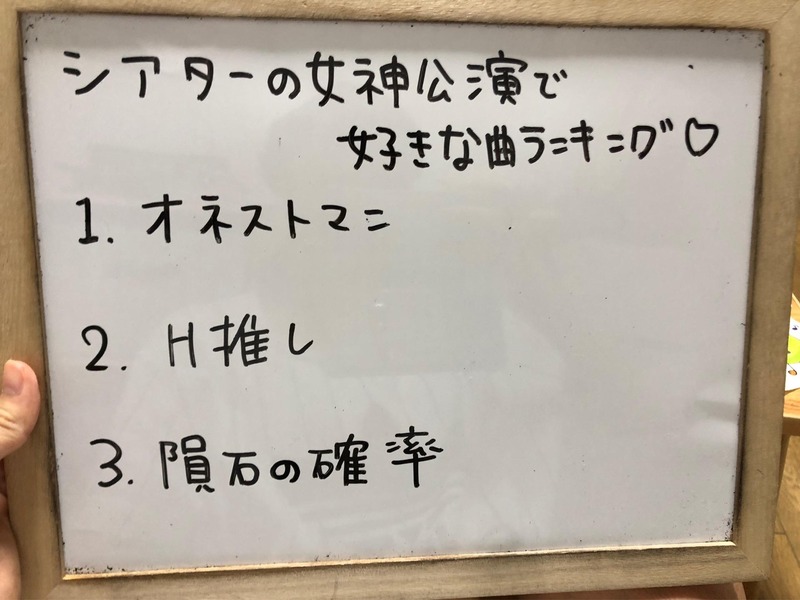 シアターの女神公演で
好きな曲ランキング♡
1. オネストマン
2. H推し
3. 隕石の確率